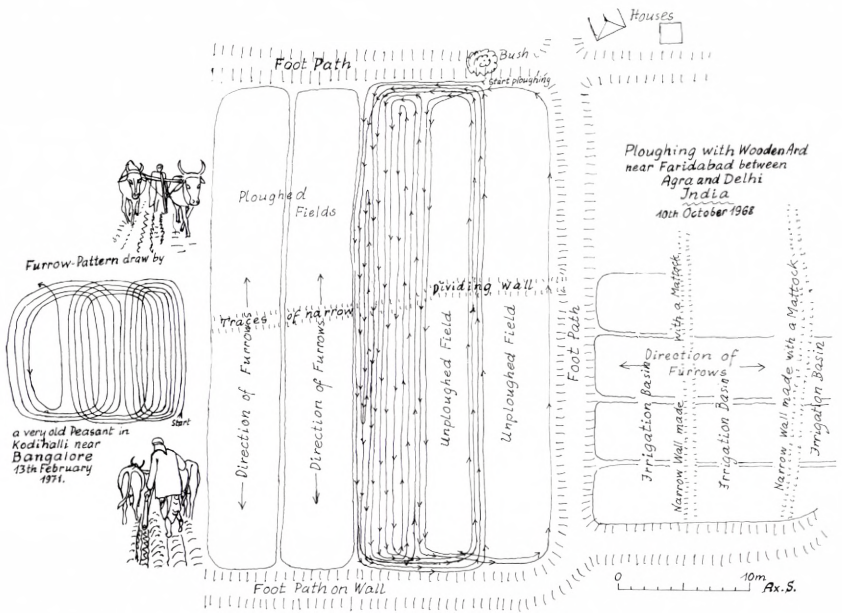 Houses
Foot Path
Bush
Start ploughing
Ploughing with Wooden Ard
near Faridabad between
Agra and Delhi
India
10th October 1968
Ploughed
Fields
Furrow-Pattern draw by
Start
a very old Peasant in
Kodihalli near
Bangalore
13th February
1971.
Traces of narrow
Dividing Wall
Direction of Furrows
Direction of Furrows
Unploughed Field
Unploughed Field
Foot Path
Direction of
Furrows
Irrigation Basin
Narrow Wall made with a Mattock
Irrigation Basin
Narrow Wall made with a Mattock
Irrigation Basin
Foot Path on Wall
0 10m
Ax.S.